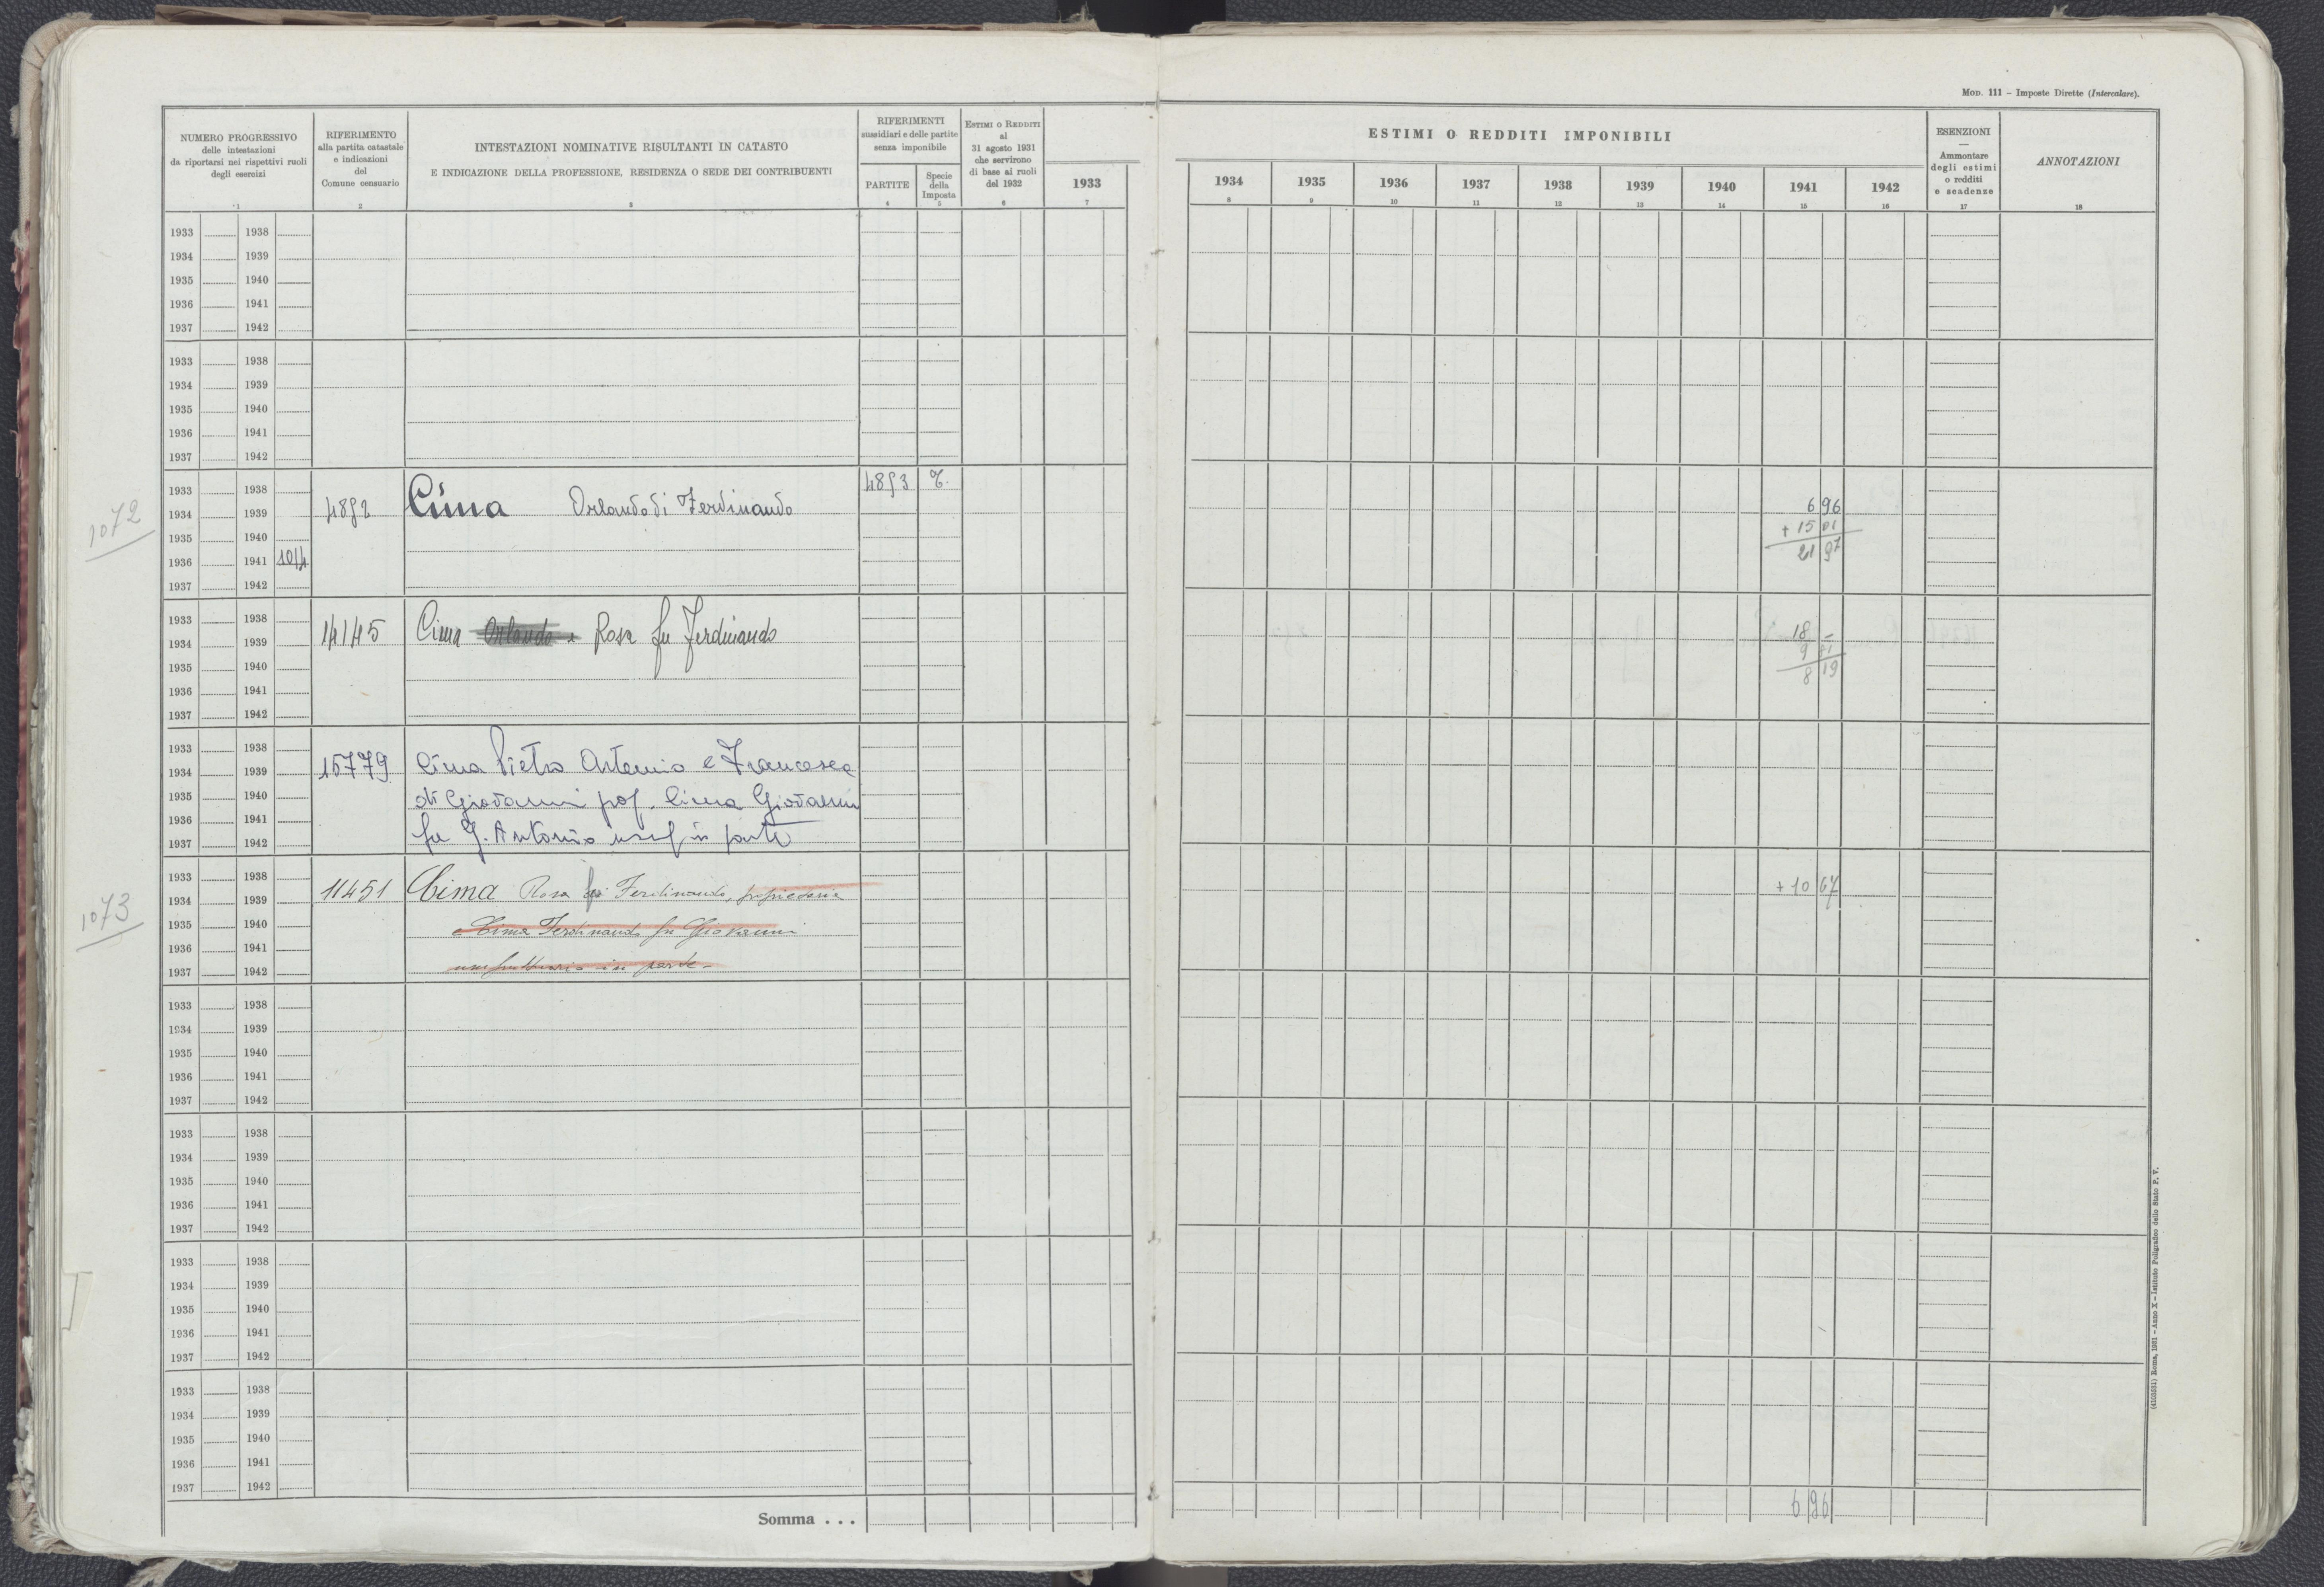 MOD. 111 – Imposte Dirette (Intercalare).
NUMERO PROGRESSIVO
delle intestazioni
da riportarsi nei rispettivi ruoli
degli esercizi
1
RIFERIMENTO
alla partita catastale
e indicazioni
del
Comune censuario
2
INTESTAZIONI NOMINATIVE RISULTANTI IN CATASTO
E INDICAZIONE DELLA PROFESSIONE, RESIDENZA O SEDE DEI CONTRIBUENTI
3
RIFERIMENTI
sussidiari e delle partite
senza imponibile
PARTITE
4
Specie
della
Imposta
5
ESTIMI O REDDITI
al
31 agosto 1931
che servirono
di base ai ruoli
del 1932
6
1933
7
ESTIMI O REDDITI IMPONIBILI
1934 1935 1936 1937 1938 1939 1940 1941 1942
8 9 10 11 12 13 14 15 16
ESENZIONI
—
Ammontare
degli estimi
o redditi
e scadenze
17
ANNOTAZIONI
18
1933 1938
1934 1939
1935 1940
1936 1941
1937 1942
1933 1938
1934 1939
1935 1940
1936 1941
1937 1942
1072
1933 1938 4893
1934 1939 4892 Cima Orlando di Ferdinando 6 96
1935 1940 + 15 01
1936 1941 1014 21 97
1937 1942
1933 1938
1934 1939 14145 Cima Orlando e Rosa fu Ferdinando 18 –
1935 1940 9 81
1936 1941 8 19
1937 1942
1933 1938
1934 1939 15779 Cima Pietro Artemio e Francesca
1935 1940 di Giovanni prop. Cima Giovanni
1936 1941
1937 1942 fu G. Antonio usuf in parte
1073
1933 1938
1934 1939 11451 Cima Rosa fu Ferdinando, proprietaria + 10 67
1935 1940 e Cima Ferdinando fu Giovanni
1936 1941
1937 1942 usufruttuario in parte -
1933 1938
1934 1939
1935 1940
1936 1941
1937 1942
1933 1938
1934 1939
1935 1940
1936 1941
1937 1942
1933 1938
1934 1939
1935 1940
1936 1941
1937 1942
1933 1938
1934 1939
1935 1940
1936 1941
1937 1942
Somma . . . 6 96
Roma, 1931 – Anno X – Istituto Poligrafico dello Stato P. V.